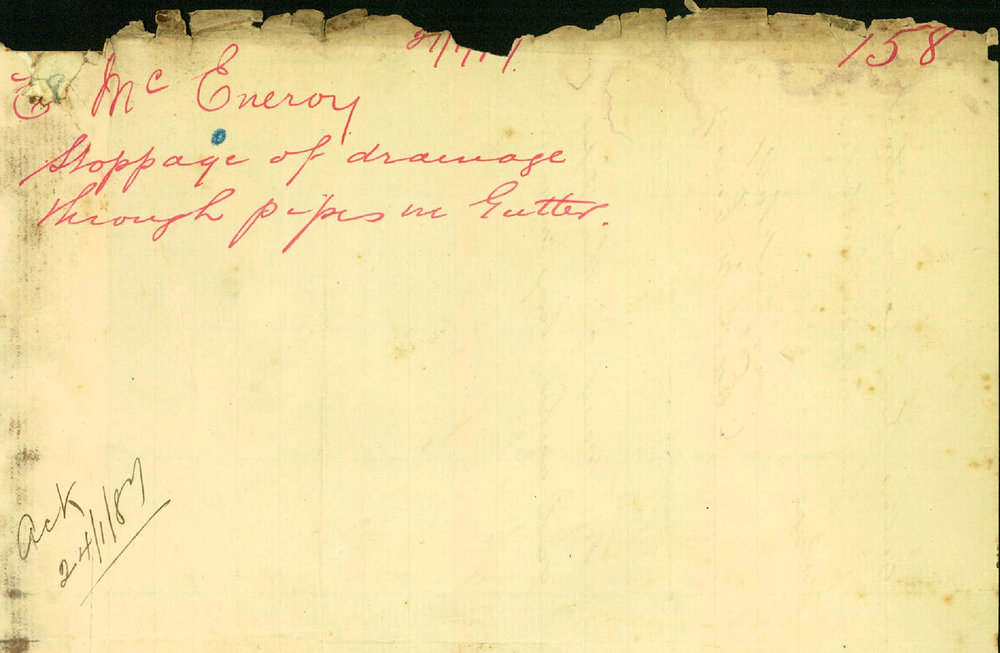 158
E McEneroy
Stoppage of drainage
through pipes in Gutter.
Ack
24/1/87